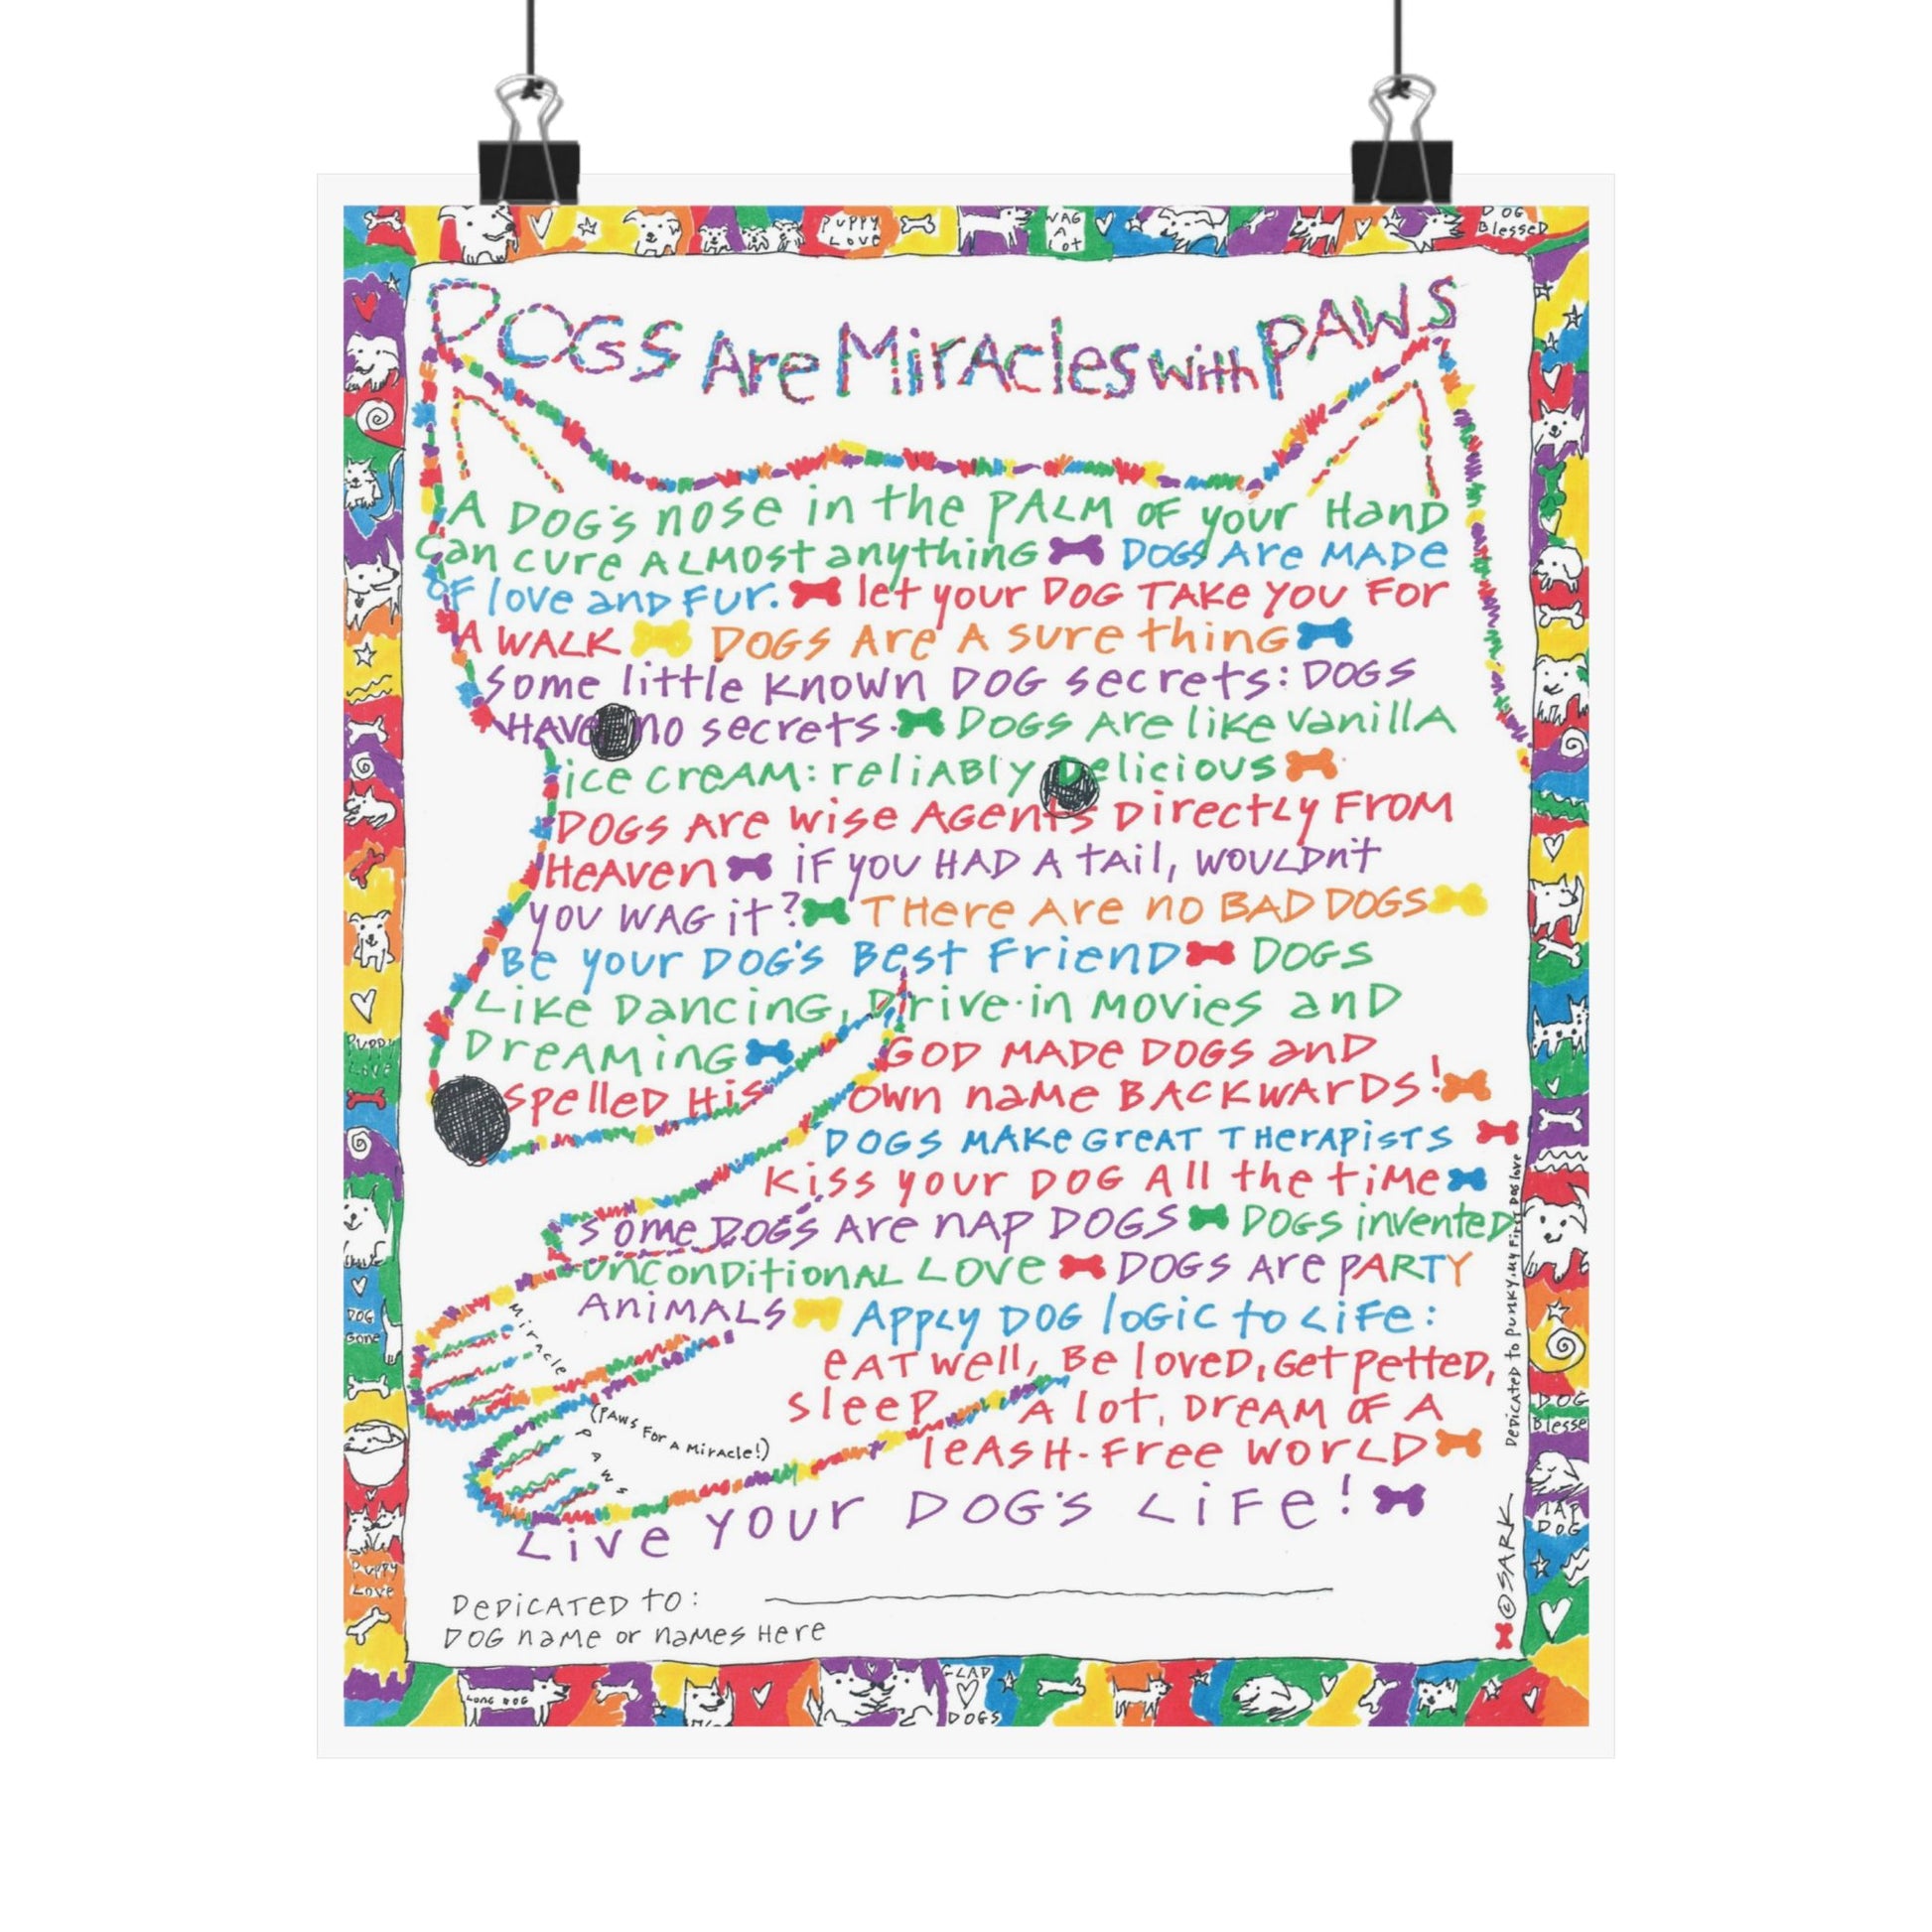 PUPPY LOVE
WAG A LOT
DOG Blessed
DOGS Are Miracles with PAWS
A DOG'S nose in the PALM OF your Hand
Can cure ALMOST anything DOGS Are MADE
OF love and Fur. let your DOG TAKE YOU FOR
A WALK DOGS Are A sure thing
Some little known DOG secrets: DOGS
HAVE no secrets. DOGS Are like vanillA
ice creAM: reliABly Delicious
DOGS Are wise Agents Directly From
HeAven iF you HAD A tAil, woulDn't
you WAG it? THere Are no BAD DOGS
Be your DOG'S Best FrienD DOGS
Like DAncing, Drive-in Movies anD
DreAMing GOD MADE DOGS anD
spelleD His own nAMe BACKWARDS!
DOGS MAKe GreAT THerApisTs
Kiss your DOG All the tiMe
some DOGS Are nAp DOGS DOGS invented
unconditionAL Love DOGS Are PARTY
AniMALS Apply DOG logic to LiFe:
eAT well, Be loveD, Get petteD,
sleep A lot, DreAM OF A
leASH-Free worLD
Live your DOG'S LiFe!
Miracle
(PAWS For A Miracle!)
PAWS
DeDicATeD to:
DOG nAme or nAmes Here
DeDicATeD to Punky, My First Dog love
© SARK
PUPPY LOVE
DOG Gone
PUPPY LOVE
DOG Blesse
LAP DOG
Long DOG
GLAD DOGS